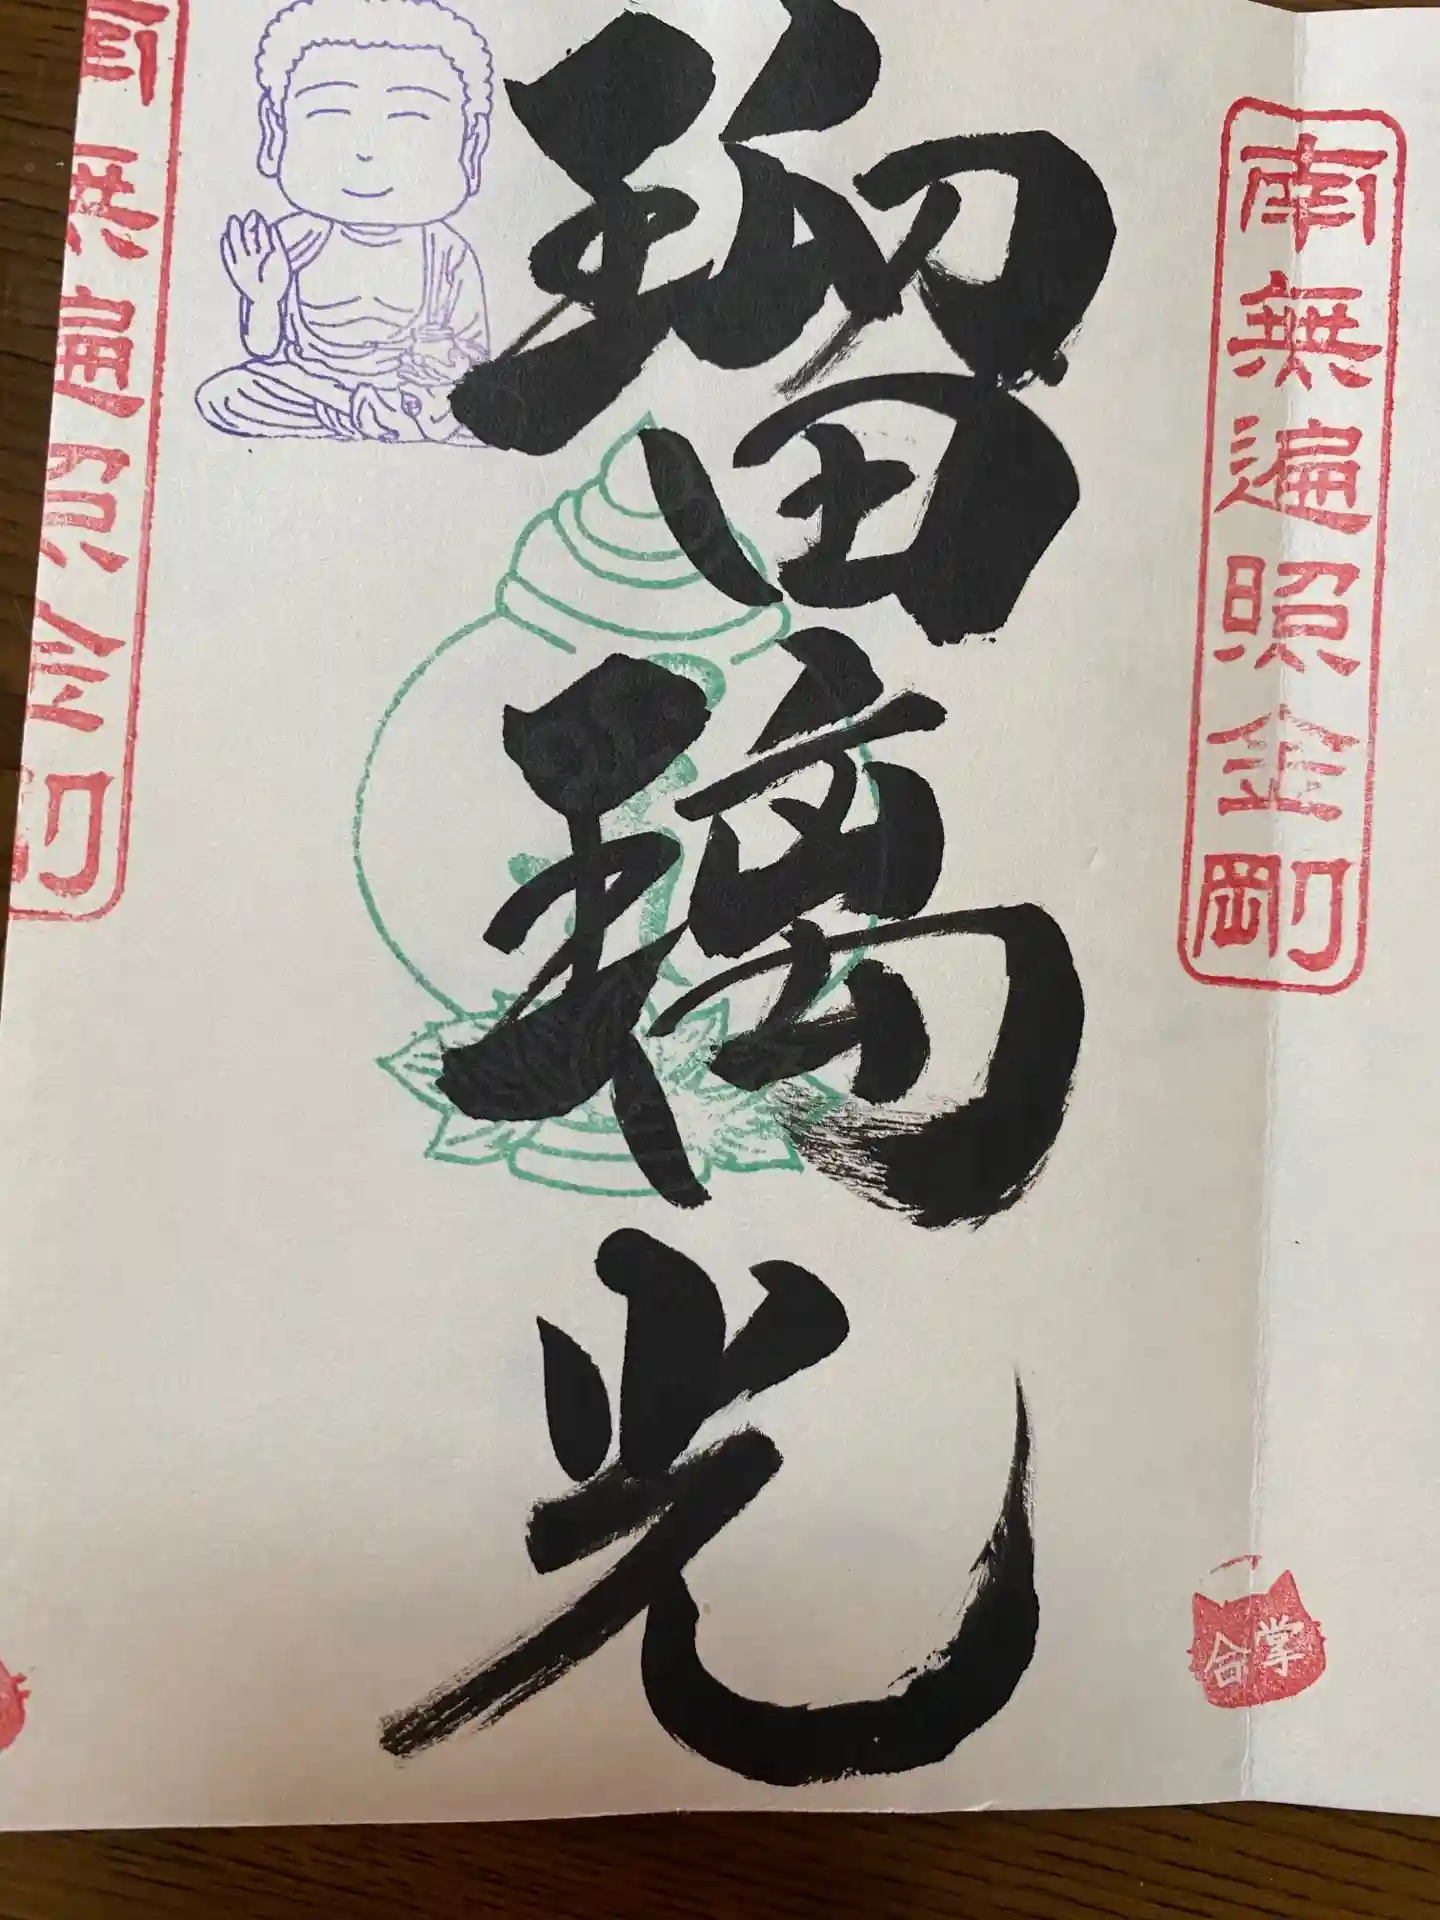 南無遍照金剛
合掌
瑠璃光
南無遍照金剛